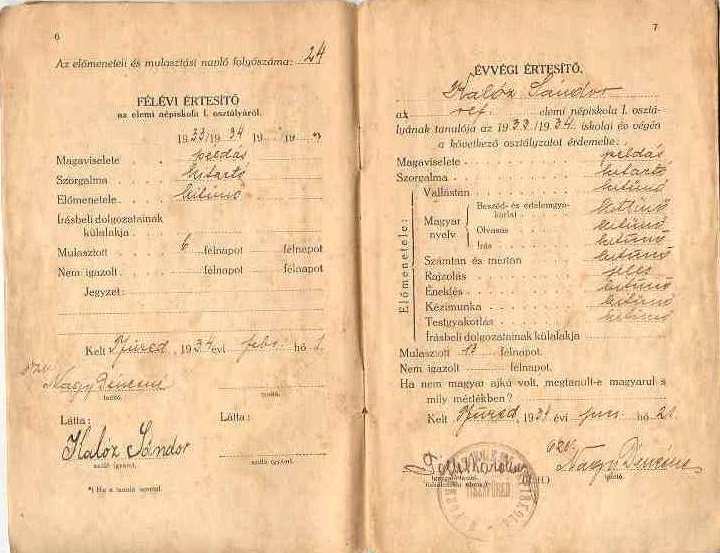 6
Az előmeneteli és mulasztási napló folyószáma: 24
FÉLÉVI ÉRTESÍTŐ
az elemi népiskola I. osztályáról.
1933/1934 19 /19 *)
Magaviselete példás
Szorgalma kitartó
Előmenetele kitünő
Írásbeli dolgozatainak
külalakja
Mulasztott 6 félnapot félnapot
Nem igazolt félnapot félnapot
Jegyzet:
Kelt Tfüred, 1934 évi febr. hó 1.
Nagy Dénesné
tanító. tanító.
Látta: Látta:
Kalóz Sándor
szülő (gyám). szülő (gyám).
*) Ha a tanuló ismétel.
7
ÉVVÉGI ÉRTESÍTŐ.
Kalóz Sándor
az ref. elemi népiskola I. osztá-
lyának tanulója az 1933/1934. iskolai év végén
a következő osztályzatot érdemelte:
Magaviselete példás
Szorgalma kitartó
Előmenetele:
Vallástan kitünő
Magyar nyelv
Beszéd- és értelemgya-
korlat kitünő
Olvasás kitünő
Írás kitünő
Számtan és mértan kitünő
Rajzolás jeles
Éneklés kitünő
Kézimunka kitünő
Testgyakorlás kitünő
Írásbeli dolgozatainak külalakja
Mulasztott 13 félnapot.
Nem igazolt félnapot.
Ha nem magyar ajkú volt, megtanult-e magyarul s
mily mértékben?
Kelt Tfüred, 1934 évi jun. hó 21.
Nagy Dénesné
(P. H.) tanító.
TISZAFÜRED